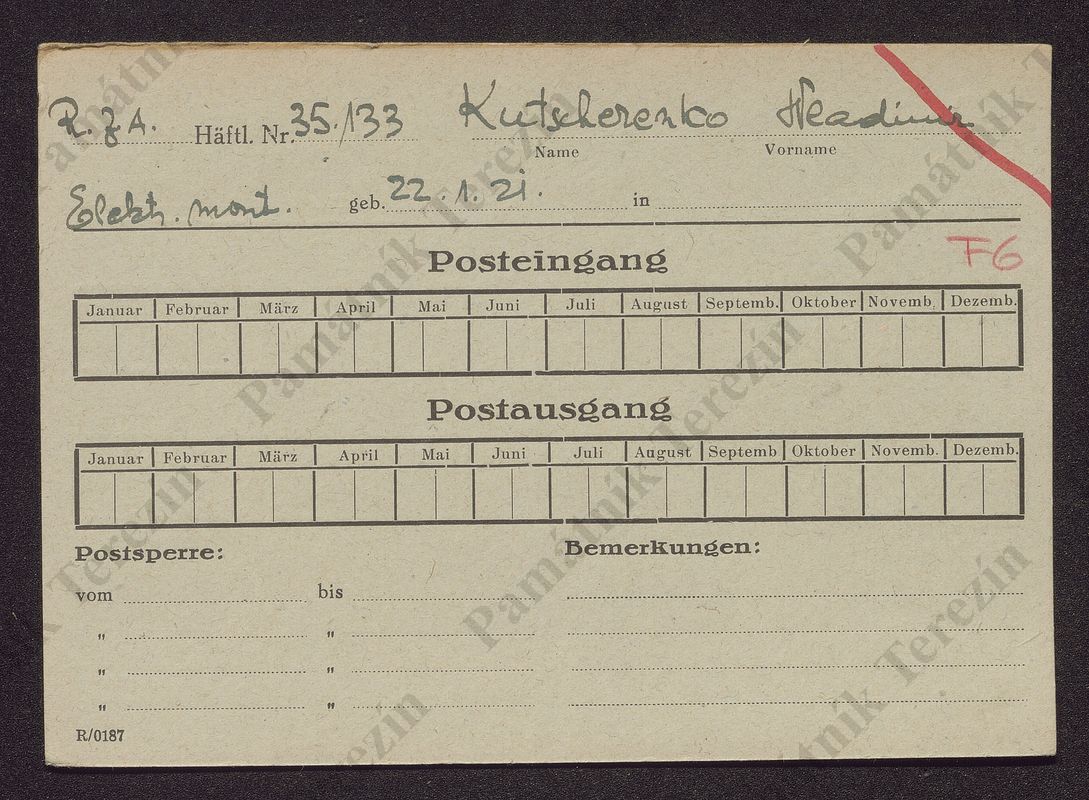 R. z A. Häftl. Nr. 35./133 Kutscherenko Wladimir
Name Vorname
Elektr. mont. geb. 22. 1. 21. in
F6
Posteingang
Januar Februar März April Mai Juni Juli August Septemb. Oktober Novemb. Dezemb.
Postausgang
Januar Februar März April Mai Juni Juli August Septemb Oktober Novemb. Dezemb.
Postsperre: Bemerkungen:
vom bis
" "
" "
" "
R/0187
Památník Terezín